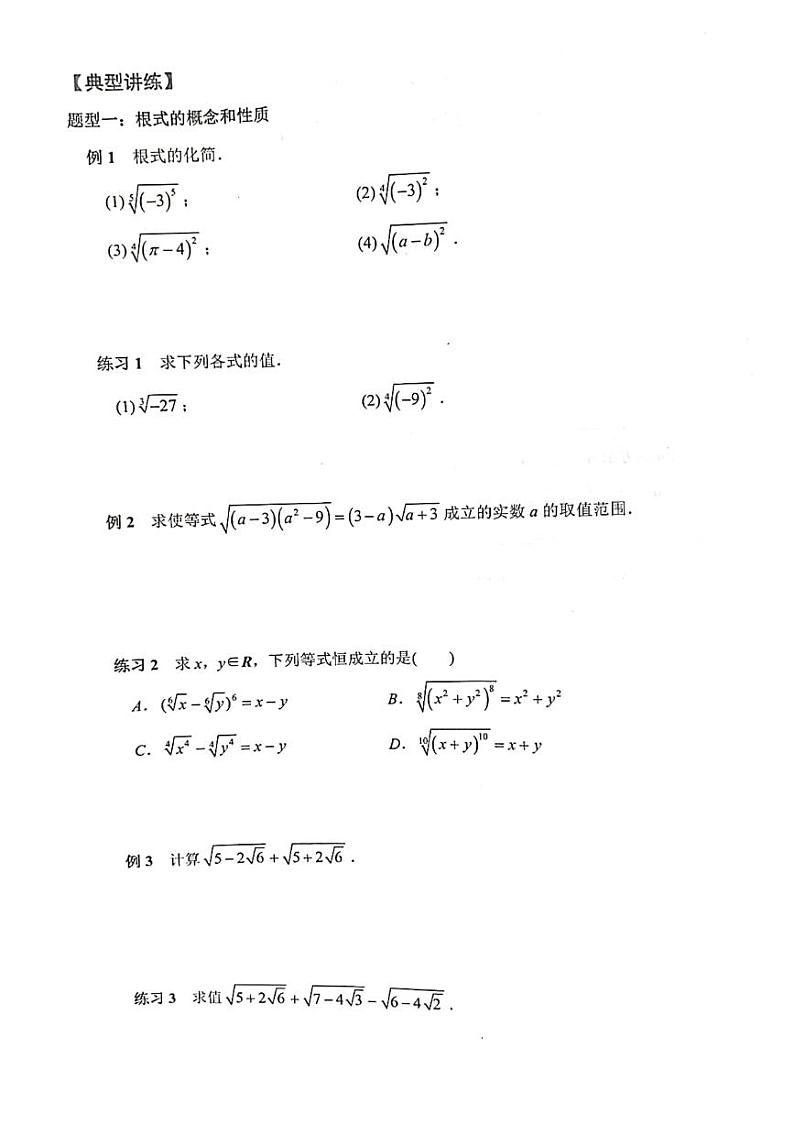 【典型讲练】
题型一：根式的概念和性质
例 1 根式的化简．
(1) $\sqrt[5]{(-3)^5}$； (2) $\sqrt[4]{(-3)^2}$；
(3) $\sqrt[4]{(\pi-4)^2}$； (4) $\sqrt{(a-b)^2}$．
练习 1 求下列各式的值．
(1) $\sqrt[3]{-27}$； (2) $\sqrt[4]{(-9)^2}$．
例 2 求使等式 $\sqrt{(a-3)(a^2-9)}=(3-a)\sqrt{a+3}$ 成立的实数 a 的取值范围．
练习 2 求 x，y∈R，下列等式恒成立的是( )
A．$(\sqrt[6]{x}-\sqrt[6]{y})^6=x-y$ B．$\sqrt[8]{(x^2+y^2)^8}=x^2+y^2$
C．$\sqrt[4]{x^4}-\sqrt[4]{y^4}=x-y$ D．$\sqrt[10]{(x+y)^{10}}=x+y$
例 3 计算 $\sqrt{5-2\sqrt{6}}+\sqrt{5+2\sqrt{6}}$．
练习 3 求值 $\sqrt{5+2\sqrt{6}}+\sqrt{7-4\sqrt{3}}-\sqrt{6-4\sqrt{2}}$．